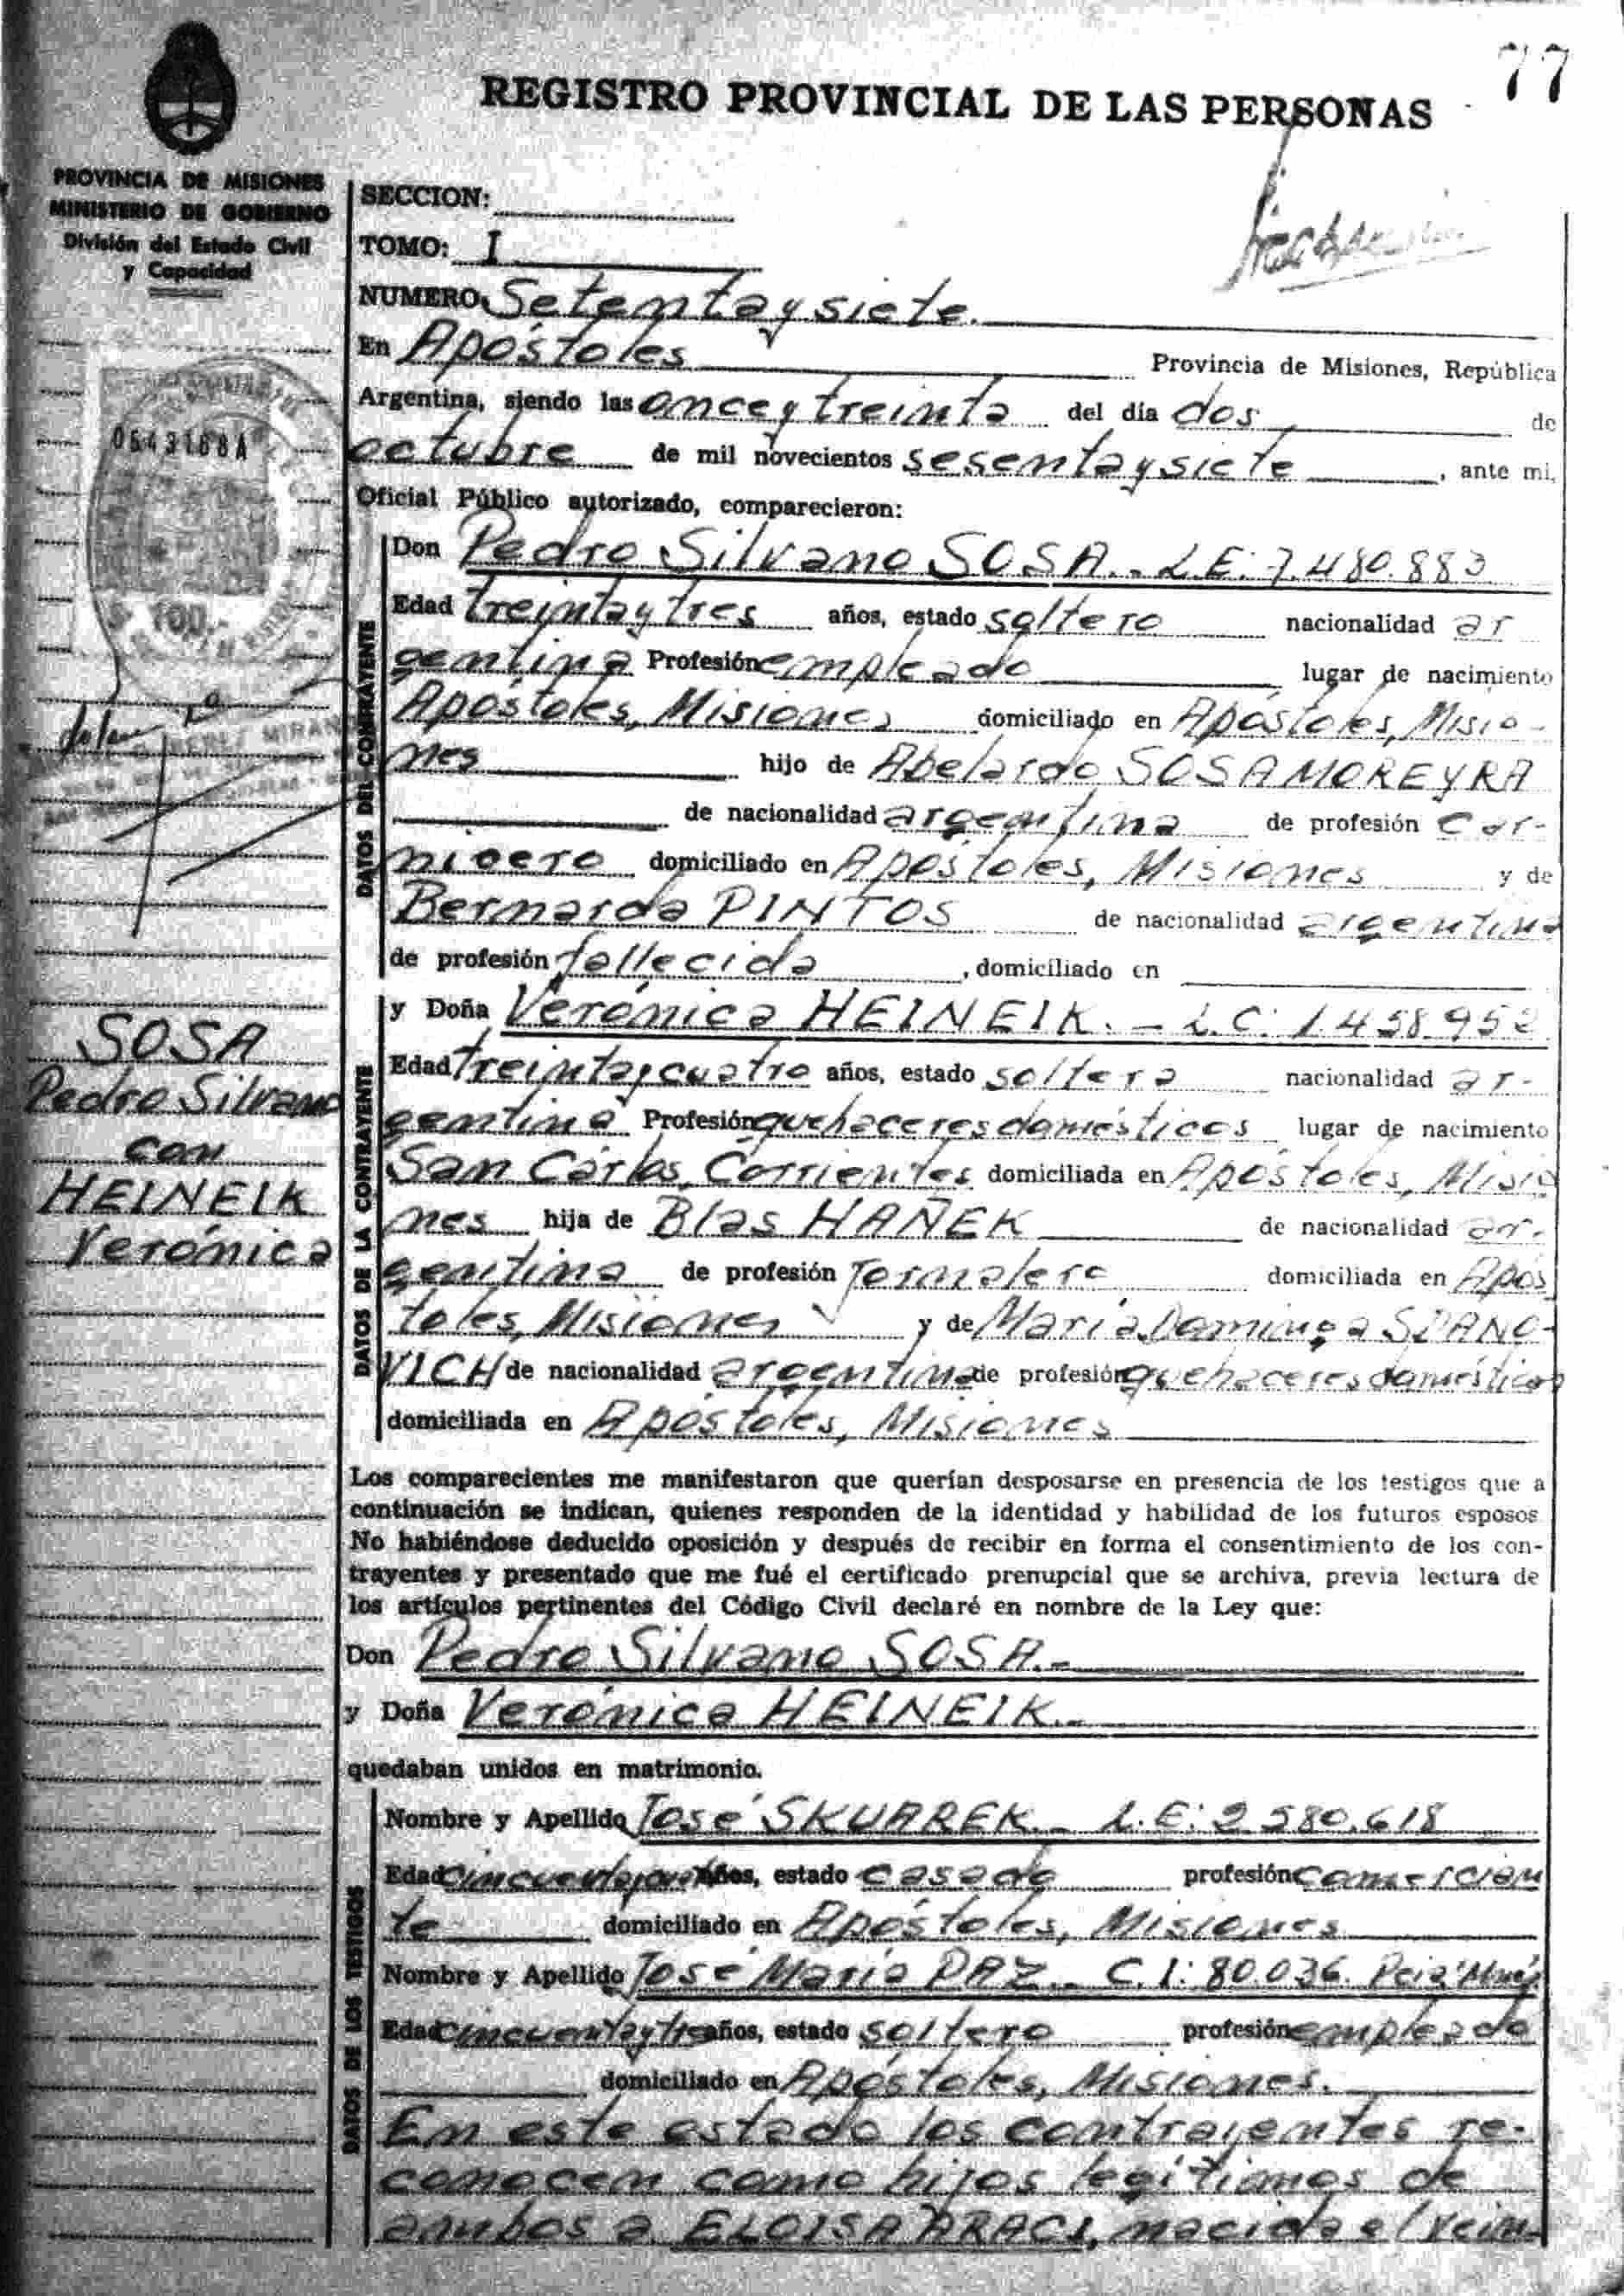 77
REGISTRO PROVINCIAL DE LAS PERSONAS
PROVINCIA DE MISIONES
MINISTERIO DE GOBIERNO
División del Estado Civil
y Capacidad
SECCION:
TOMO: I
NUMERO Setenta y siete.
En Apóstoles Provincia de Misiones, República
Argentina, siendo las once y treinta del día dos de
octubre de mil novecientos sesenta y siete, ante mi,
Oficial Público autorizado, comparecieron:
0543188A
100
DATOS DEL CONTRAYENTE
Don Pedro Silvano SOSA.- L.E: 7.480.883
Edad treinta y tres años, estado soltero nacionalidad ar
gentina Profesión empleado lugar de nacimiento
Apóstoles, Misiones domiciliado en Apóstoles, Misio-
nes hijo de Abelardo SOSA MOREYRA
de nacionalidad argentina de profesión car-
nicero domiciliado en Apóstoles, Misiones y de
Bernarda PINTOS de nacionalidad argentina
de profesión fallecida, domiciliado en
SOSA
Pedro Silvano
con
HEINEIK
Verónica
DATOS DE LA CONTRAYENTE
y Doña Verónica HEINEIK.- L.C: 1.458.952
Edad treinta y cuatro años, estado soltera nacionalidad ar-
gentina Profesión quehaceres domésticos lugar de nacimiento
San Carlos, Corrientes domiciliada en Apóstoles, Misio
nes hija de Blas HAÑEK de nacionalidad ar-
gentina de profesión Jornalero domiciliada en Após
toles, Misiones y de María Dominga SPANO-
VICH de nacionalidad argentina de profesión quehaceres domésticos
domiciliada en Apóstoles, Misiones
Los comparecientes me manifestaron que querían desposarse en presencia de los testigos que a
continuación se indican, quienes responden de la identidad y habilidad de los futuros esposos
No habiéndose deducido oposición y después de recibir en forma el consentimiento de los con-
trayentes y presentado que me fué el certificado prenupcial que se archiva, previa lectura de
los artículos pertinentes del Código Civil declaré en nombre de la Ley que:
Don Pedro Silvano SOSA.-
y Doña Verónica HEINEIK.-
quedaban unidos en matrimonio.
DATOS DE LOS TESTIGOS
Nombre y Apellido José SKUAREK.- L.E: 2.580.618
Edad años, estado casado profesión comercian
te domiciliado en Apóstoles, Misiones
Nombre y Apellido José María PAZ.- C.I: 80.036.
Edad cincuenta y tres años, estado soltero profesión empleado
domiciliado en Apóstoles, Misiones.
En este estado los contrayentes re-
conocen como hijos legítimos de
ambos a ELOISA ARACI, nacida el vein-